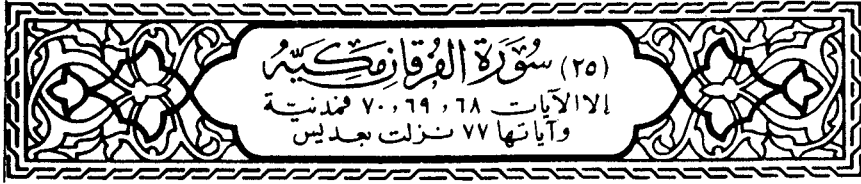 (٢٥) سُوْرَةُ الفُرْقَانِ مَكِيَّةٌ
إلا الآيات ٦٨ ، ٦٩ ، ٧٠ فمدنية
وآياتها ٧٧ نزلت بعد يس